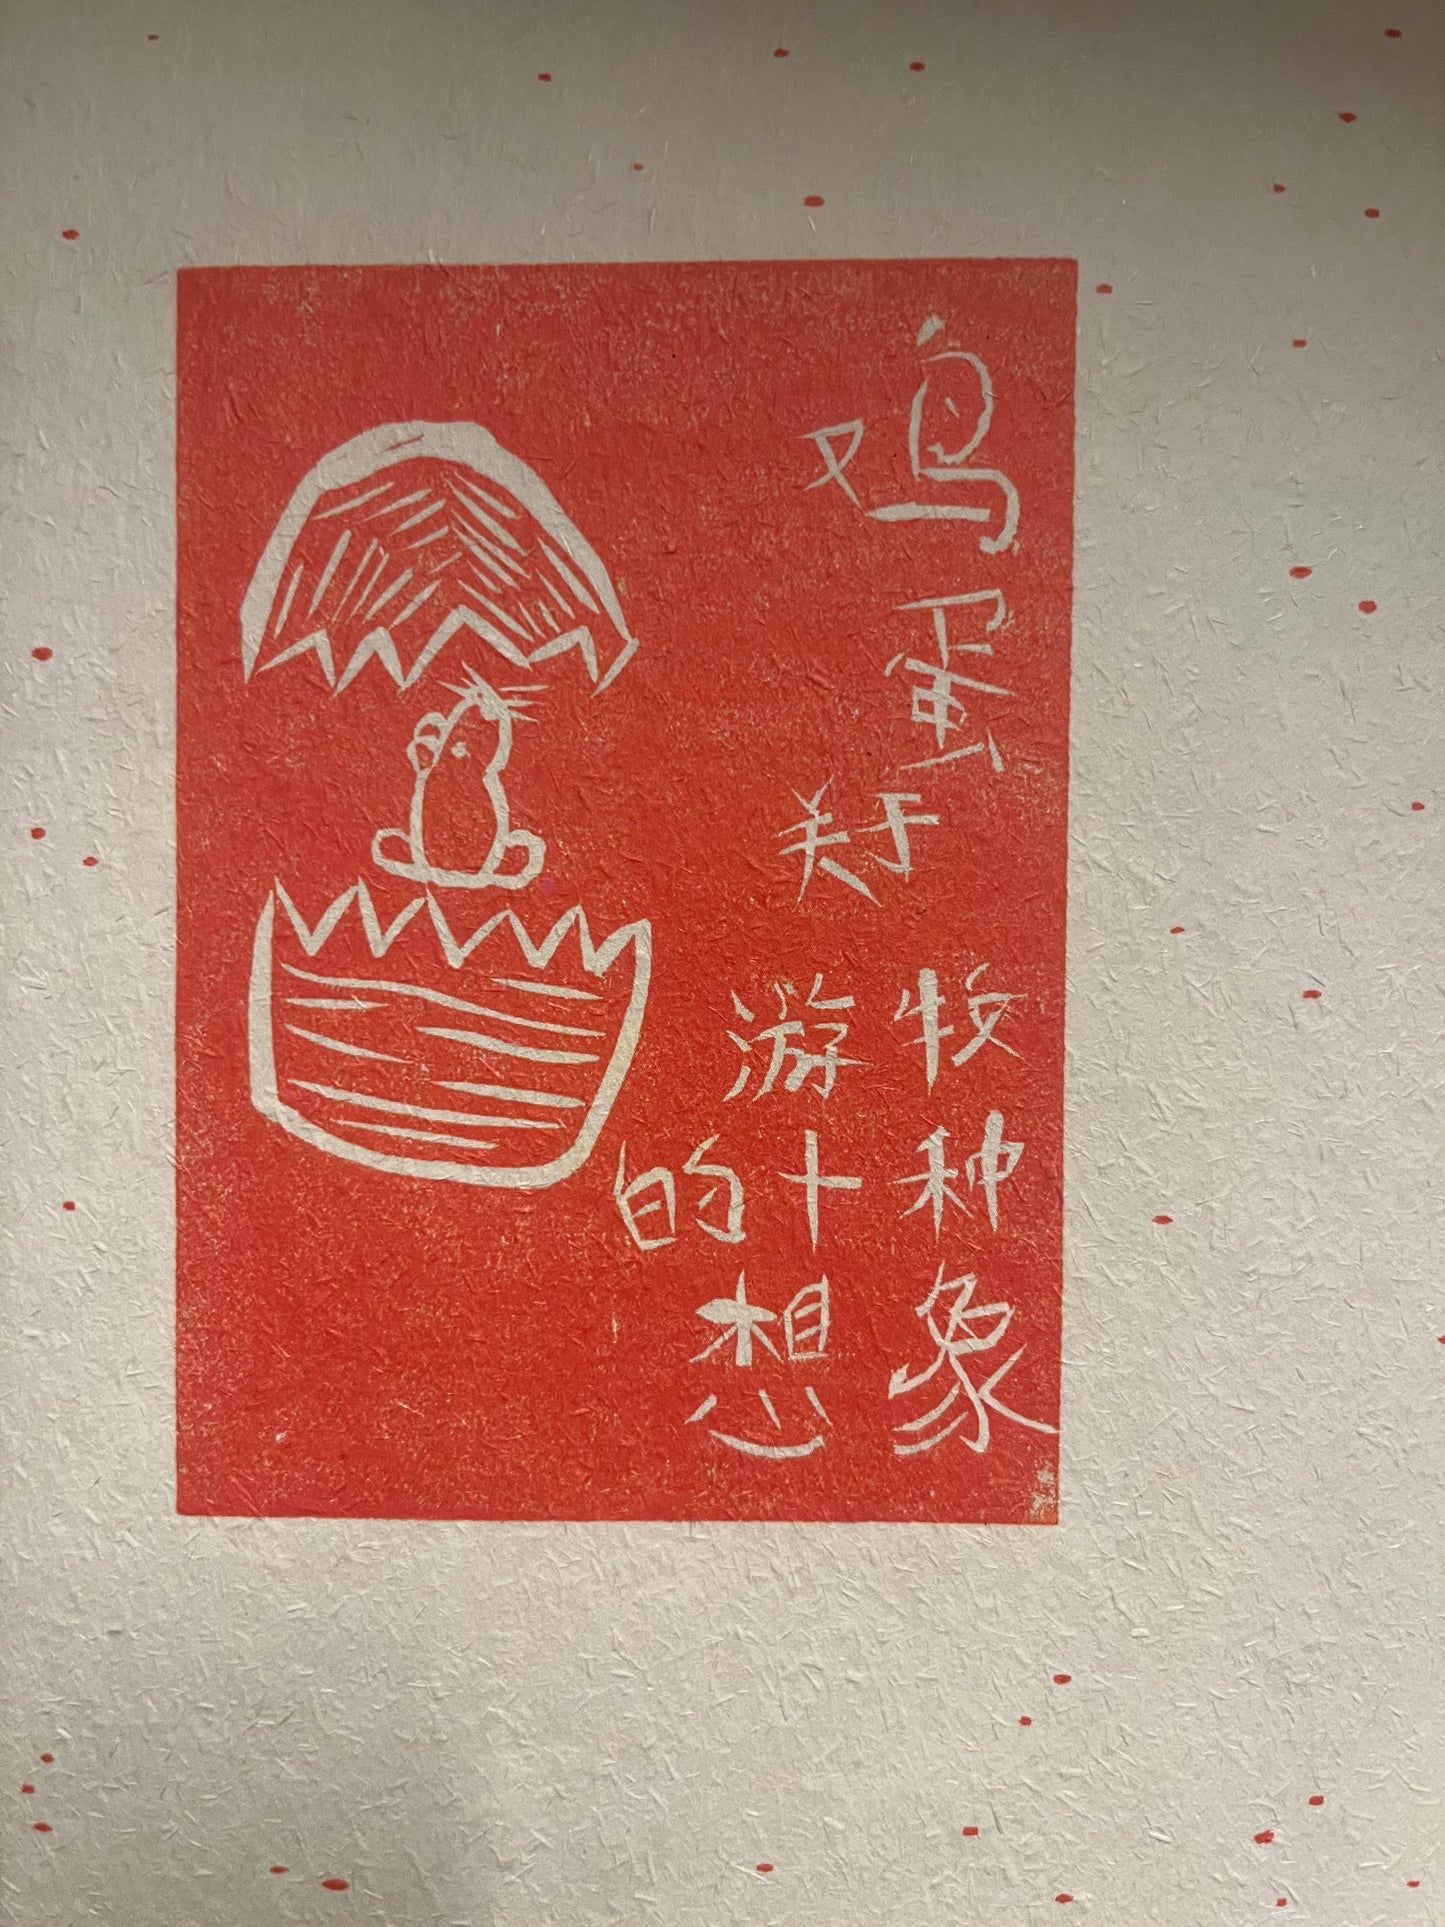 鸡蛋
关于
牧种象
游十想
的